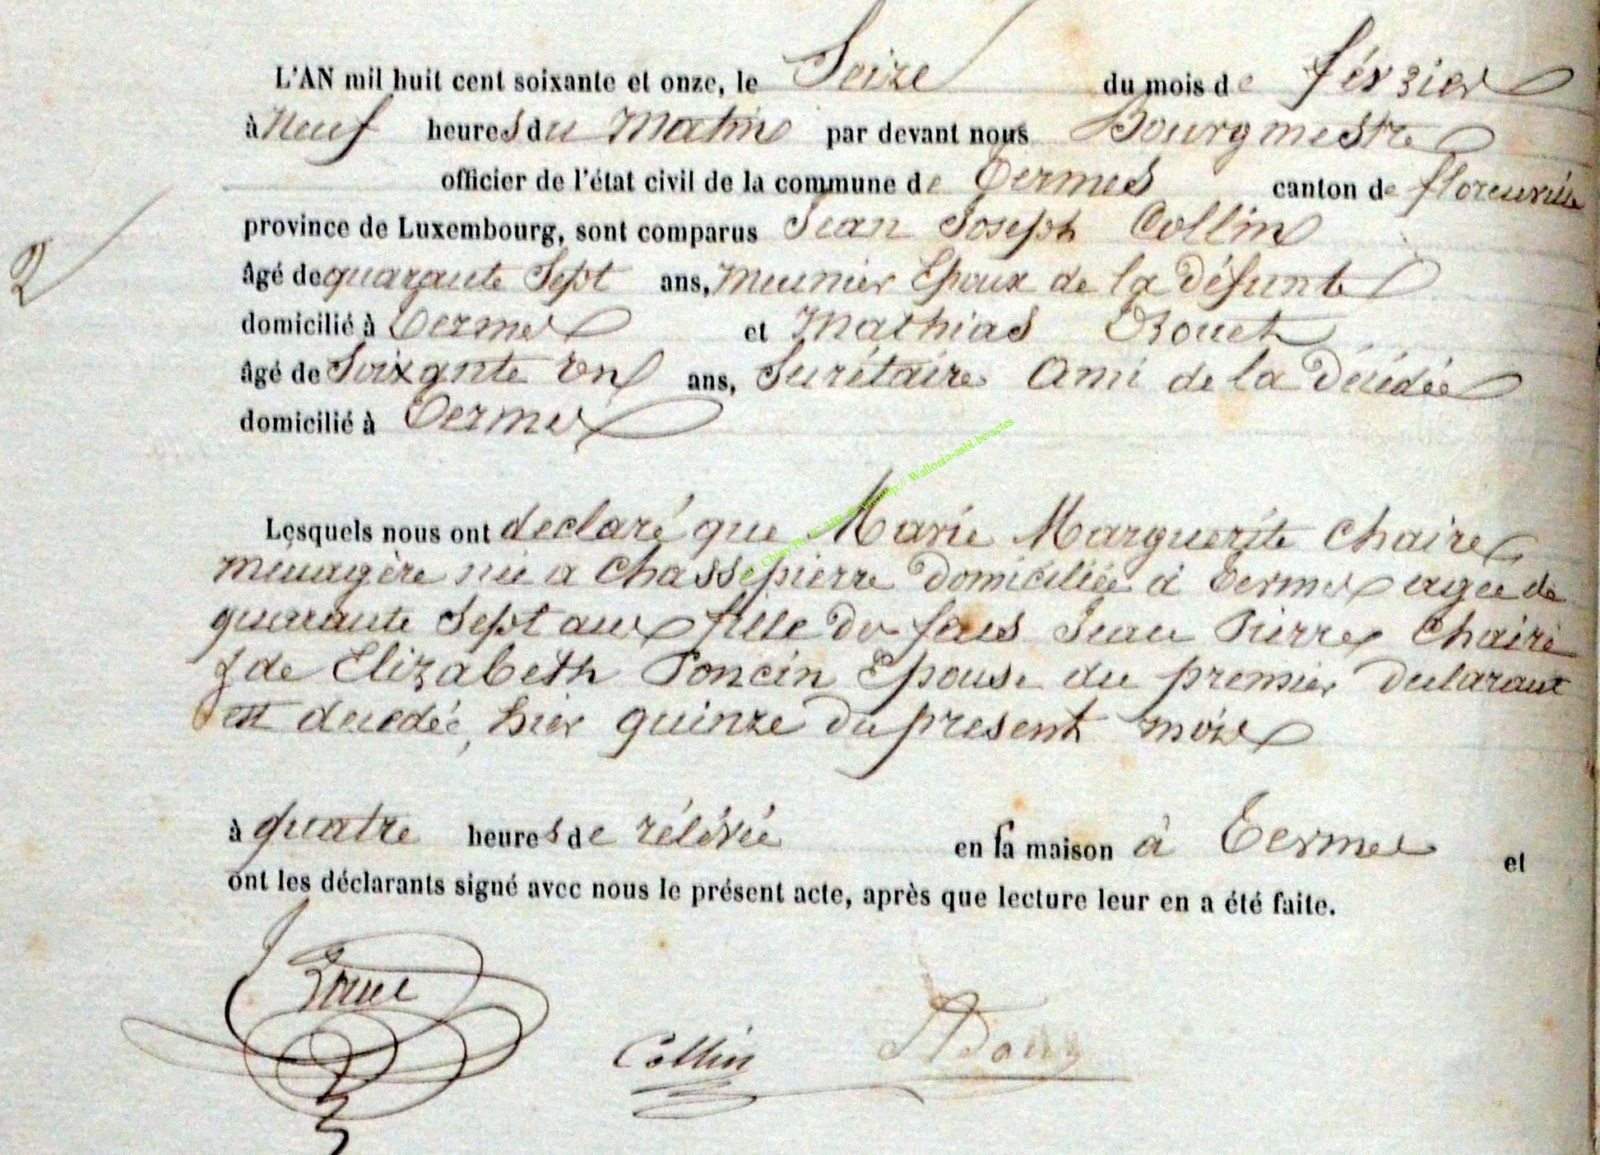 L'AN mil huit cent soixante et onze, le Seize du mois de février
à Neuf heures du Matin par devant nous Bourgmestre
officier de l'état civil de la commune de Termes canton de florenville
province de Luxembourg, sont comparus Jean Joseph Collin
2
âgé de quarante Sept ans, Meunier Epoux de la défunte
domicilié à Termes et Mathias
âgé de Soixante un ans, Secrétaire Ami de la Décédée
domicilié à Termes
Wallonia-asbl.be-actes
Lesquels nous ont declaré que Marie Marguerite Chaire
menagère née a Chassepierre Domiciliée à Termes agée de
quarante Sept ans fille de feus Jean Pierre Chaire
& de Elizabeth Poncin Epouse du premier Declarant
est decedée, hier quinze du present mois
à quatre heures de rélévée en sa maison à Termes et
ont les déclarants signé avec nous le présent acte, après que lecture leur en a été faite.
Collin